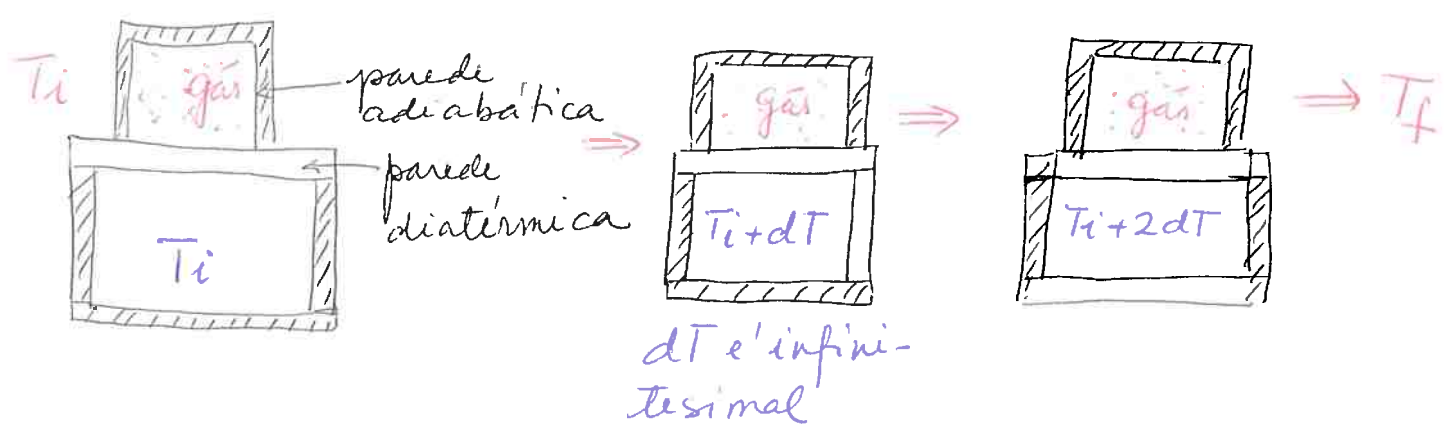 Ti
gás
parede
adiabática
parede
diatérmica
Ti
⇒
gás
Ti+dT
dT é infini-
tesimal
⇒
gás
Ti+2dT
⇒ Tf